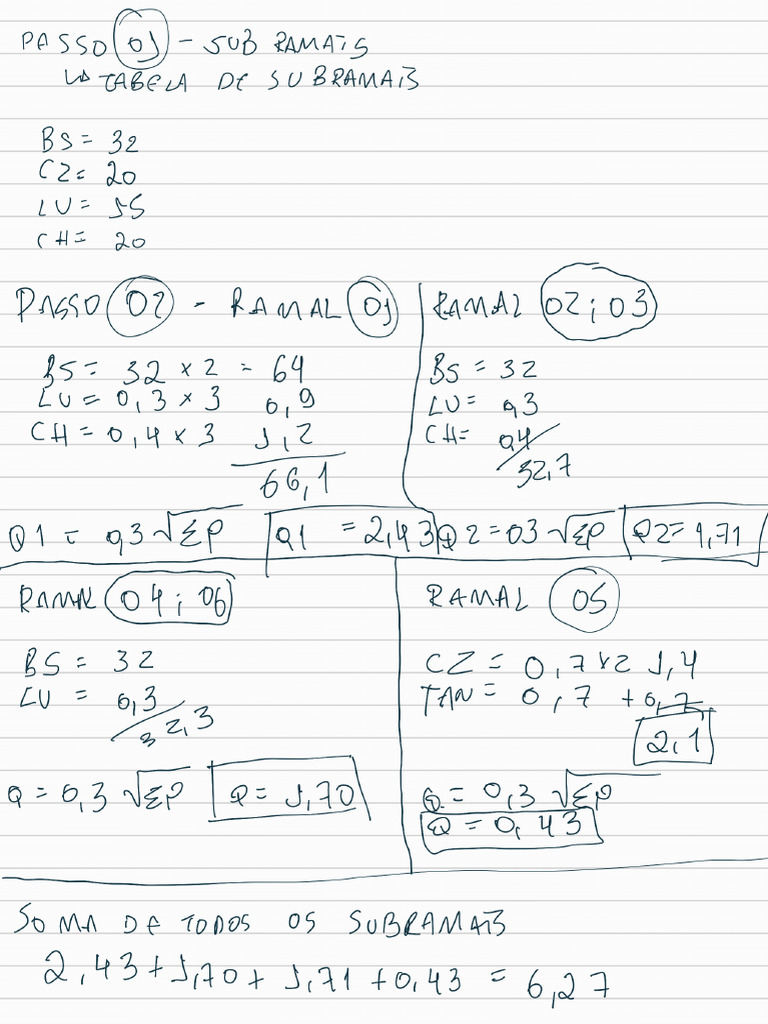 PASSO 01 - SUB RAMAIS
↳ TABELA DE SUBRAMAIS
BS = 32
CZ = 20
LV = 15
CH = 20
PASSO 02 - RAMAL 01
BS = 32 x 2 = 64
LV = 0,3 x 3 0,9
CH = 0,4 x 3 1,2
66,1
Q1 = 0,3 √ΣP Q1 = 2,43
RAMAL 02 ; 03
BS = 32
LV = 0,3
CH = 0,4
32,7
Q2 = 03 √ΣP Q2 = 1,71
RAMAL 04 ; 06
BS = 32
LV = 0,3
32,3
Q = 0,3 √ΣP Q = 1,70
RAMAL 05
CZ = 0,7 x 2 1,4
TAN = 0,7 + 0,7
2,1
Q = 0,3 √ΣP
Q = 0,43
SOMA DE TODOS OS SUBRAMAIS
2,43 + 1,70 + 1,71 + 0,43 = 6,27